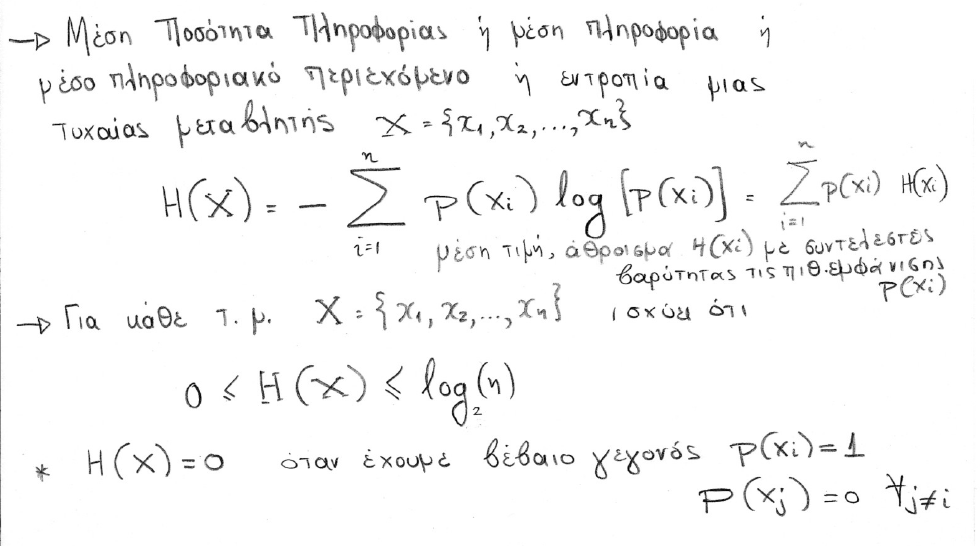 → Μέση Ποσότητα Πληροφορίας ή μέση πληροφορία ή
μέσο πληροφοριακό περιεχόμενο ή εντροπία μιας
τυχαίας μεταβλητής X = {x₁, x₂, ..., xₙ}
H(X) = - ∑ᵢ₌₁ⁿ P(xᵢ) log [P(xᵢ)] = ∑ᵢ₌₁ⁿ P(xᵢ) H(xᵢ)
μέση τιμή, άθροισμα H(xᵢ) με συντελεστές
βαρύτητας τις πιθ. εμφάνισης
P(xᵢ)
→ Για κάθε τ.μ. X = {x₁, x₂, ..., xₙ} ισχύει ότι
0 ≤ H(X) ≤ log₂(n)
* H(X) = 0 όταν έχουμε βέβαιο γεγονός P(xᵢ) = 1
P(xⱼ) = 0 ∀j≠i